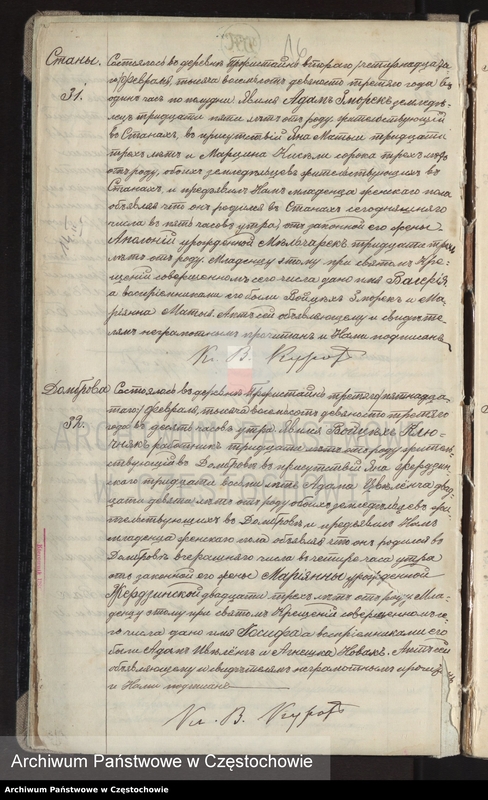 Станы.
31.
Состоялось въ деревнѣ Пристайнѣ втораго /четырнадцата
го/ Февраля, тысяча восемьсотъ девяносто третяго года въ
одинъ часъ по полудни. Явился Адамъ Зморекъ земледѣ-
лецъ тридцати пяти лѣтъ отъ роду жительствующій
въ Станахъ, въ присутствіи Яна Матыи тридцати
трехъ лѣтъ и Марцина Кискъли сорока трехъ лѣтъ
отъ роду, обоихъ земледѣльцевъ жительствующихъ въ
Станахъ, и предъявилъ Намъ младенца женскаго пола
объявляя что онъ родился въ Станахъ сегодняшняго
числа въ пять часовъ утра, отъ законной его жены
Аполоніи урожденной тридцати трехъ
лѣтъ отъ роду. Младенцу этому при святомъ Кре-
щеніи совершенномъ сего числа дано имя Валерія
а воспріемниками его были Войцехъ Зморекъ и Ма-
ріянна Матыя. Актъ сей объявляющему и свидѣте-
лямъ неграмотнымъ прочитанъ и Нами подписанъ
Кс. В. Куроѣ
Домброва
32.
Состоялось въ деревнѣ Пристайнѣ третяго /пятнадца-
таго/ Февраля, тысяча восемьсотъ девяносто третяго
года въ десять часовъ утра. Явился Войцехъ Клю-
чнякъ работникъ тридцати лѣтъ отъ роду житель-
ствующій въ Домбровѣ въ присутствіи Яна
тридцати восьми лѣтъ Адама Цвѣлёнга двад-
цати девяти лѣтъ отъ роду обоихъ земледѣльцевъ жи-
тельствующихъ въ Домбровѣ, и предъявилъ Намъ
младенца женскаго пола объявляя что онъ родился въ
Домбровѣ вчерашняго числа въ четыре часа утра
отъ законной его жены Маріянны урожденной
Жердзинской двадцати трехъ лѣтъ отъ роду. Мла-
денцу этому при святомъ Крещеніи совершенномъ се-
го числа дано имя Іосифа а воспріемниками его
были Адамъ Цвѣлёнгъ и Агнешка Новакъ. Актъ сей
объявляющему и свидѣтелямъ неграмотнымъ прочи-
и Нами подписанъ
Кс. В. Куроѣ
Archiwum Państwowe w Częstochowie
Archiwum Państwowe w Częstochowie